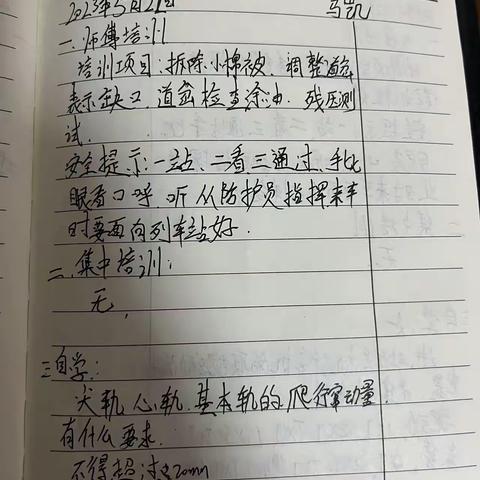 2023年5月21日 马凯
一、师傅培训
培训项目:拆除小棉被、调整道岔
表示缺口,道岔检查涂油、残压测
试.
安全提示:一站、二看三通过,手比
眼看口呼,听从防护员指挥来车
时要面向列车站好.
二、集中培训:
无,
三自学:
尖轨,心轨,基本轨的爬行窜动量
有什么要求.
不得超过20mm